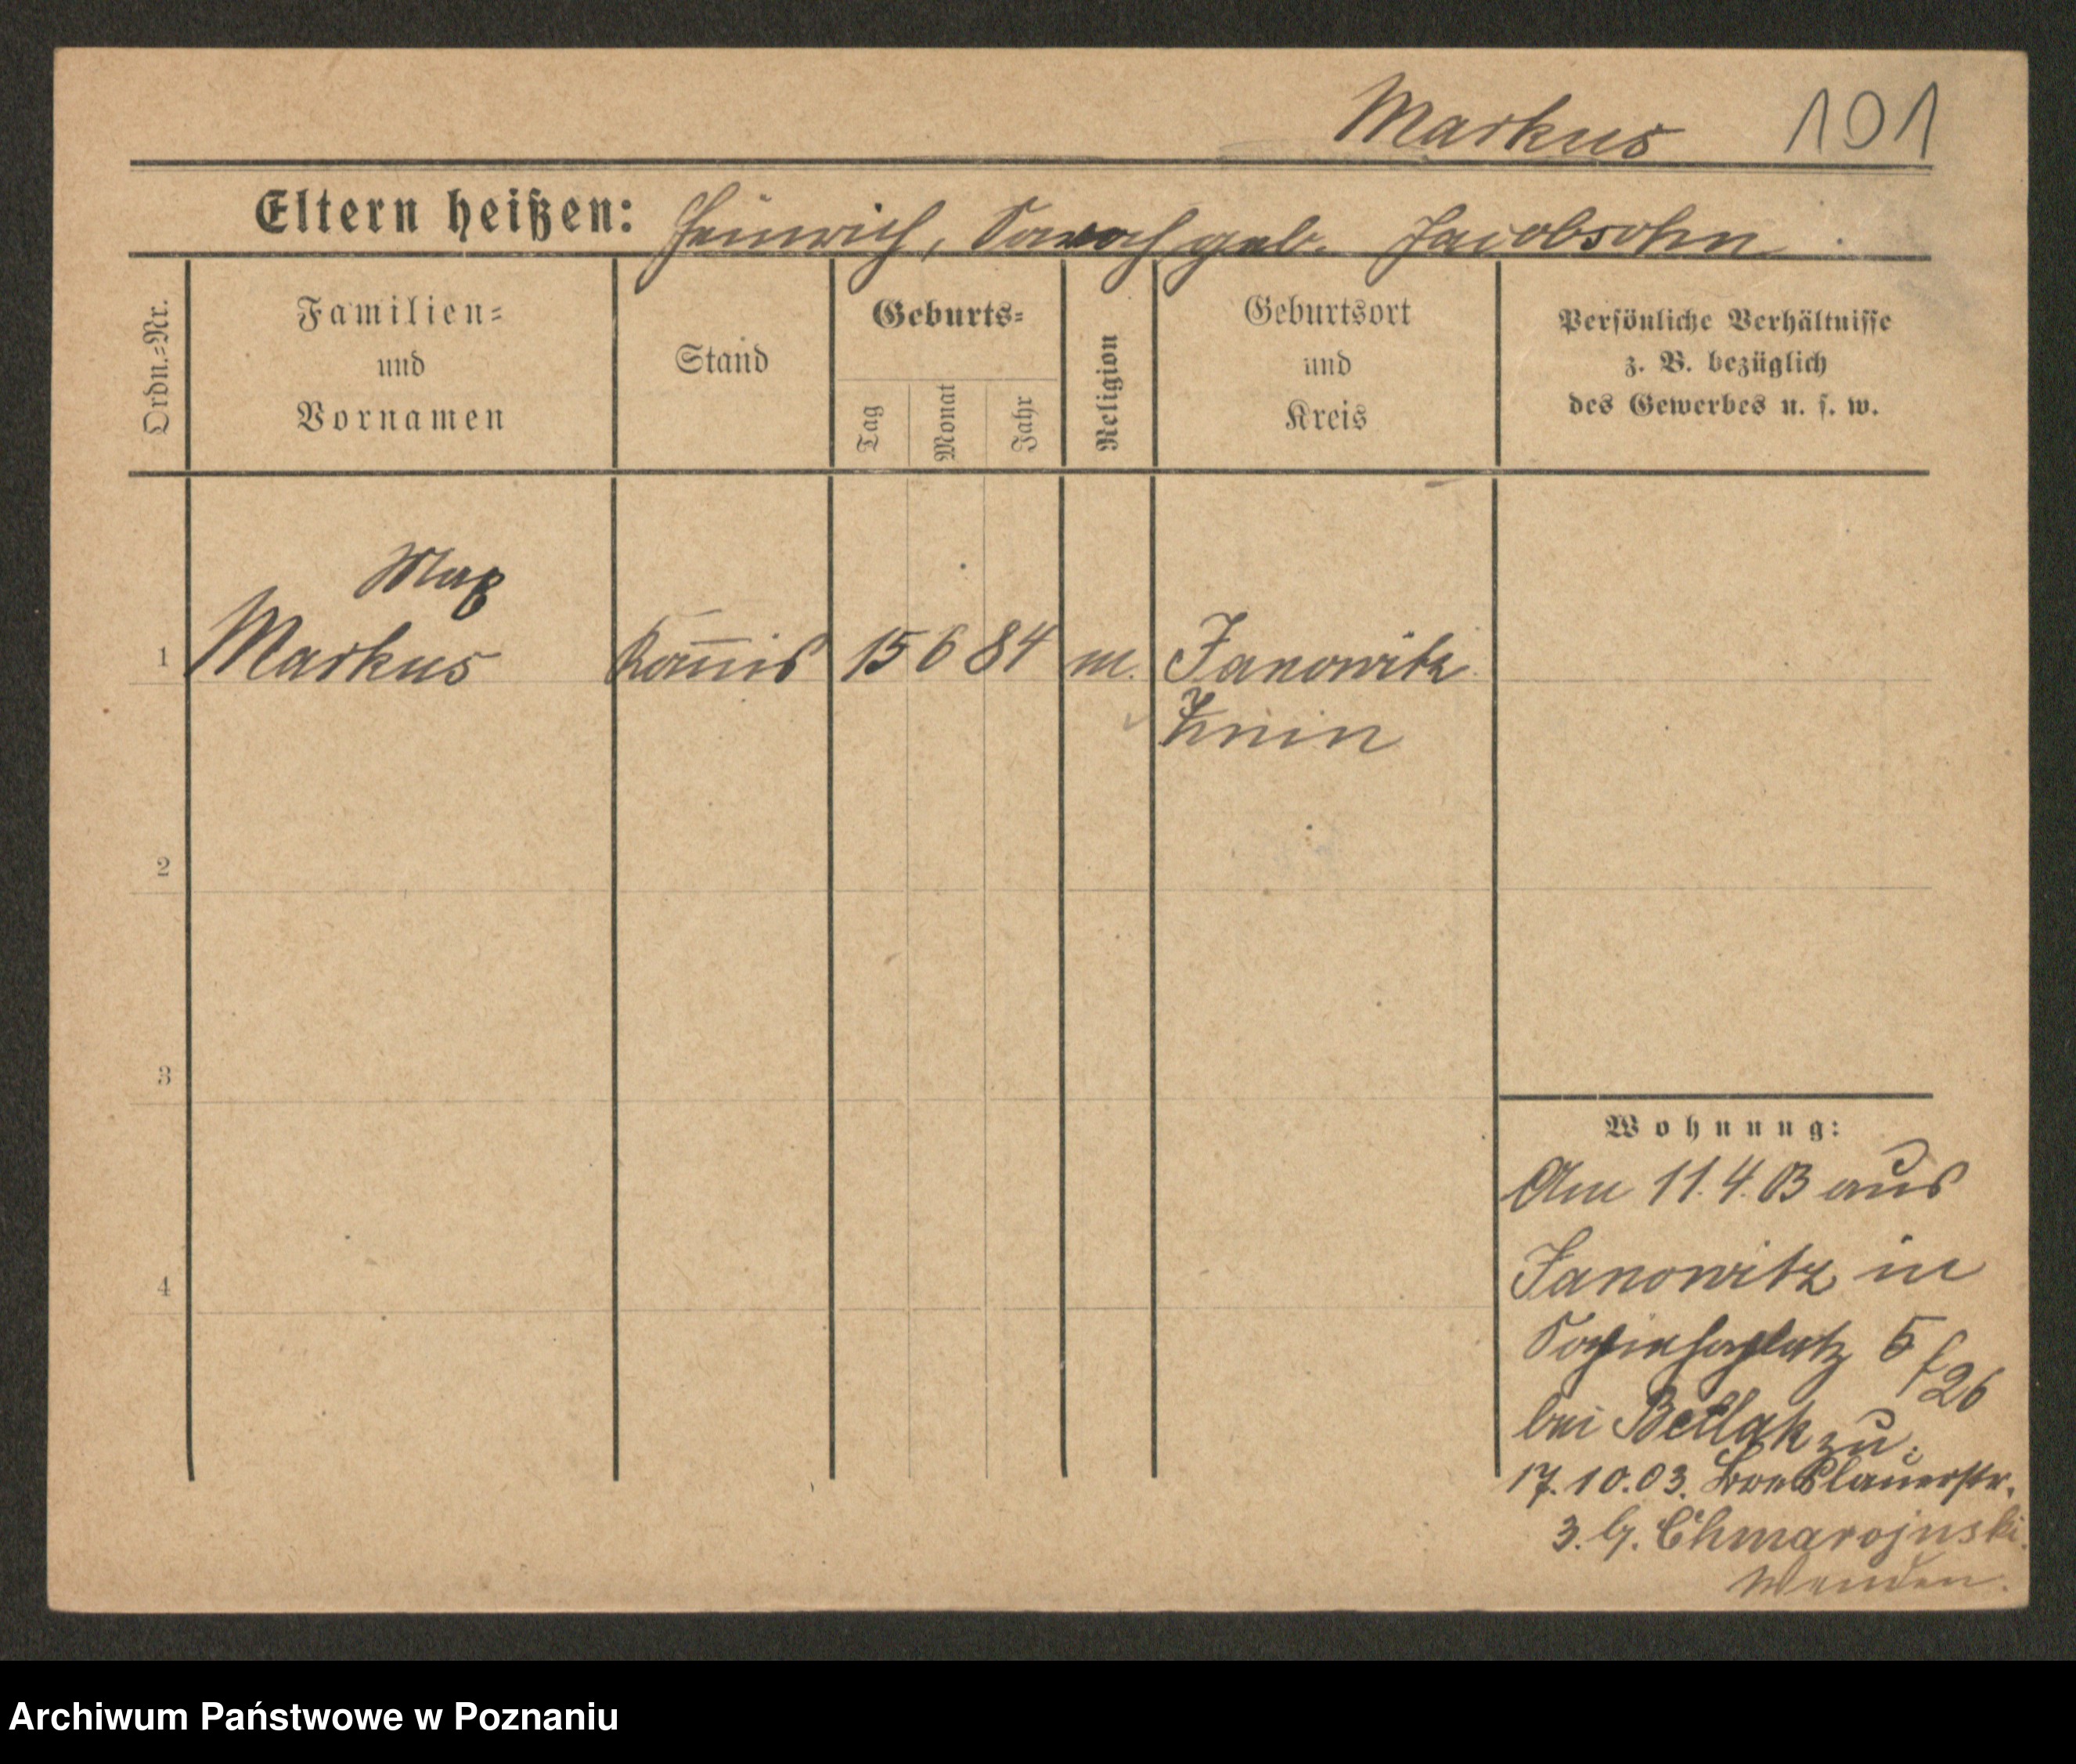 Markus 101
Eltern heißen: Heinrich, Sarah geb. Jacobsohn
Ordn.=Nr.
Familien=
und
Vornamen
Stand
Geburts=
Tag
Monat
Jahr
Religion
Geburtsort
und
Kreis
Persönliche Verhältnisse
z. B. bezüglich
des Gewerbes u. s. w.
Max
1 Markus Kom̅is 15 6 84 m. Janowitz
Znin
2
3
4
Wohnung:
Am 11. 4. 03 aus
Janowitz in
Sapiehaplatz 5
f 26
bei Betlak zu.
17. 10. 03. Breslauerstr.
3. b. Chmarojnski.
Wenden.
Archiwum Państwowe w Poznaniu